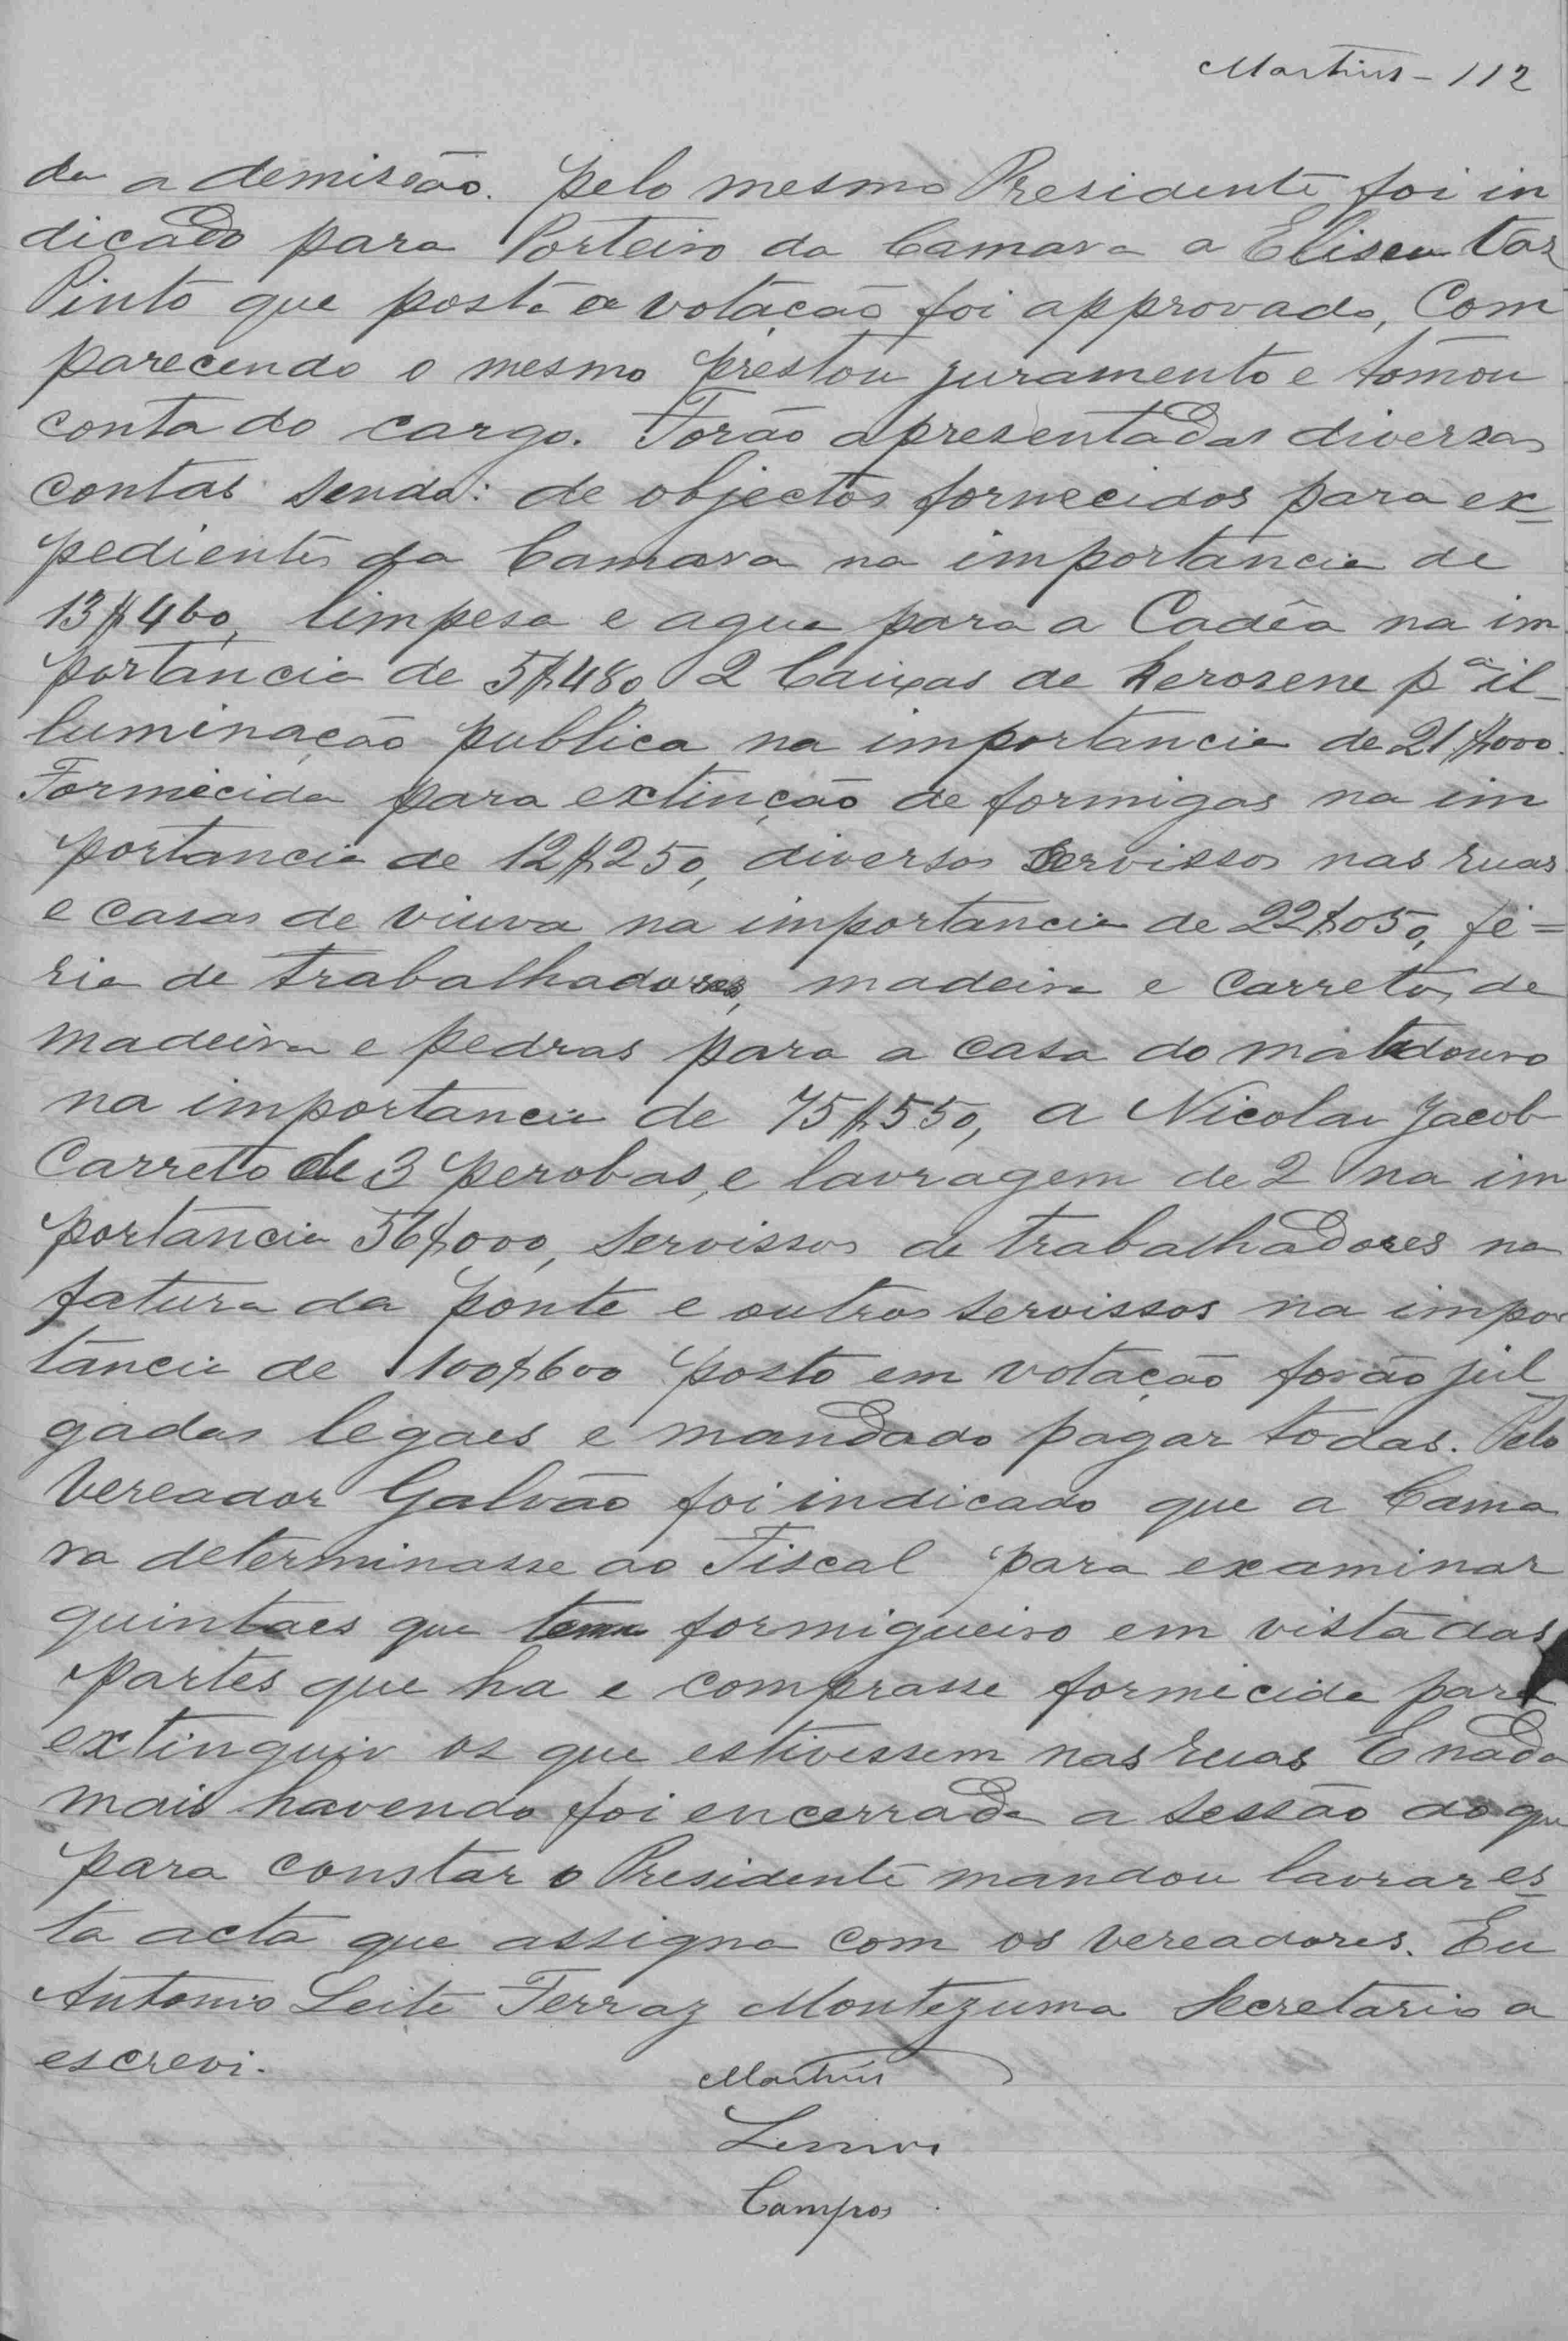 Martins - 112
da a demissão. pelo mesmo Presidente foi in
dicado para Porteiro da Camara a Eliseu Vaz
Pinto que posta a votação foi approvado, Com
parecendo o mesmo prestou juramento e tomou
conta do cargo. Forão apresentadas diversas
contas sendo: de objectos fornecidos para ex-
pedientes da Camara na importancia de
13$460, limpesa e agua para a Cadêa na im
portancia de 5$480, 2 Caixas de Kerozene pª il-
luminação publica na importancia de 21$000.
Formicida para extincção de formigas na im
portancia de 12$250, diversos servissos nas ruas
e casas de viuva na importancia de 22$050, fé=
ria de trabalhadores, madeira e carretos de
madeira e pedras para a casa do matadouro
na importancia de 75$550, a Nicolau Jacob
Carreto de 3 perobas, e lavragem de 2 na im
portancia 56$000, servissos de trabalhadores na
fatura da ponte e outros servissos na impor
tancia de 100$600 posto em votação forão jul
gadas legaes e mandado pagar todas. Pelo
Vereador Galvão foi indicado que a Cama
ra determinasse ao Fiscal para examinar
quintaes que tem formigueiro em vista das
partes que ha e comprasse formicida para
extinguir os que estivessem nas ruas E nada
mais havendo foi encerrada a sessão do que
para constar o Presidente mandou lavrar es-
ta acta que assigna com os vereadores. Eu
Antonio Leite Ferraz Montezuma Secretario a
escrevi.
Martins
Lemos
Campos